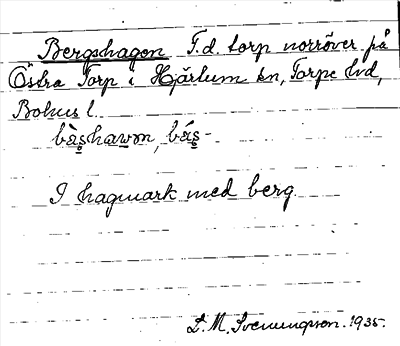 Bergshagen F.d. torp norröver på
Östra Torp i Hjärtum sn, Torpe hd,
Bohus l.
bàs̭hawm, bás̭-
I hagmark med berg.
L. M. Svenungsson. 1935.